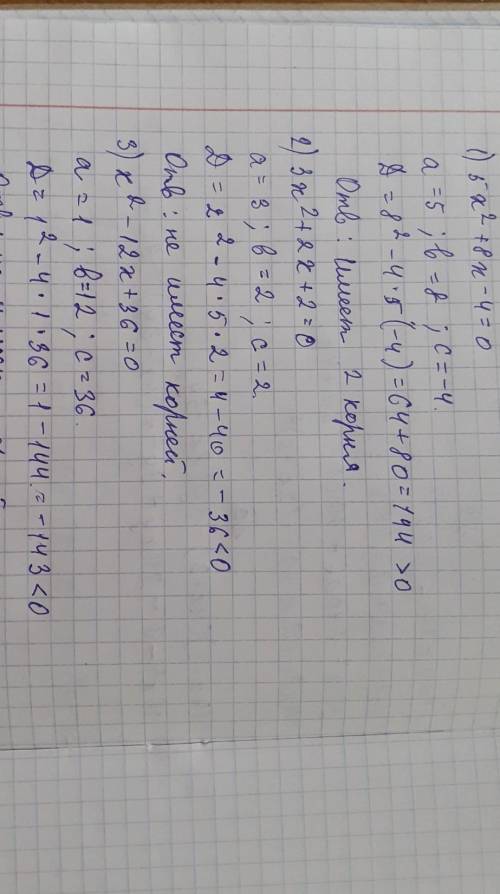 1) 5x² + 8x - 4 = 0
a = 5 ; b = 8 ; c = -4.
D = 8² - 4 · 5 (-4) = 64 + 80 = 144 > 0
Отв : Имеет 2 корня.
2) 3x² + 2x + 2 = 0
a = 3 ; b = 2 ; c = 2.
D = 2² - 4 · 5 · 2 = 4 - 40 = - 36 < 0
Отв : не имеет корней.
3) x² - 12x + 36 = 0
a = 1 ; b = 12 ; c = 36.
D = 1² - 4 · 1 · 36 = 1 - 144 = - 143 < 0